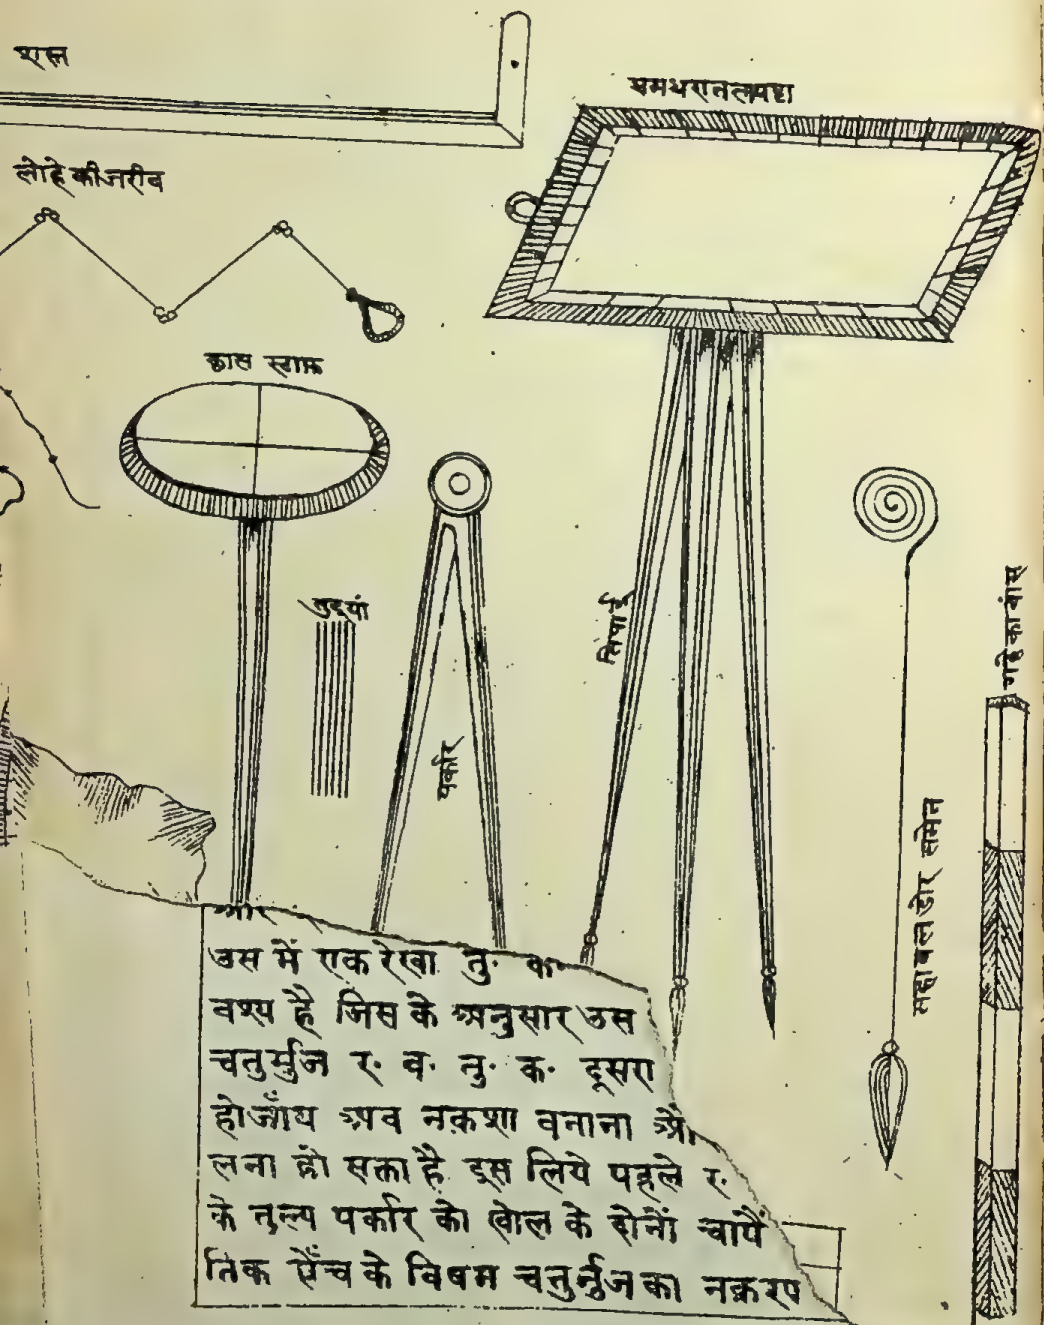 शस्त्र
समधरातलपट्टा
लोहे की जरीब
क्रास स्टाफ़
सुइयां
पर्कार
तिपाई
सहाबल डोर समेत
गट्ठे का बांस
और
उस में एक रेखा तु॰
वश्य है जिस के अनुसार उस
चतुर्भुज र॰ व॰ तु॰ क॰ दूसरा
होजाँय अब नक़शा वनाना औ
लना हो सक्ता है इस लिये पहले र॰
के तुल्य पर्कार को खोल के दोनों चापैं
तिक खैंच के विषम चतुर्भुज का नक़श